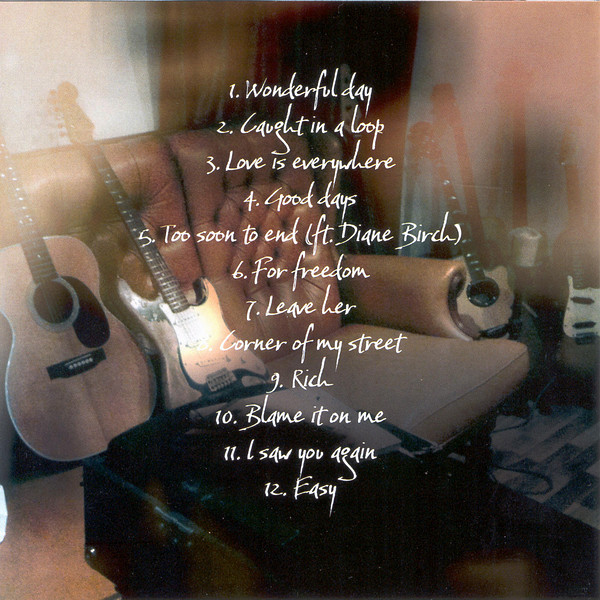 1. Wonderful day
2. Caught in a loop
3. Love is everywhere
4. Good days
5. Too soon to end (ft. Diane Birch)
6. For freedom
7. Leave her
8. Corner of my street
9. Rich
10. Blame it on me
11. I saw you again
12. Easy